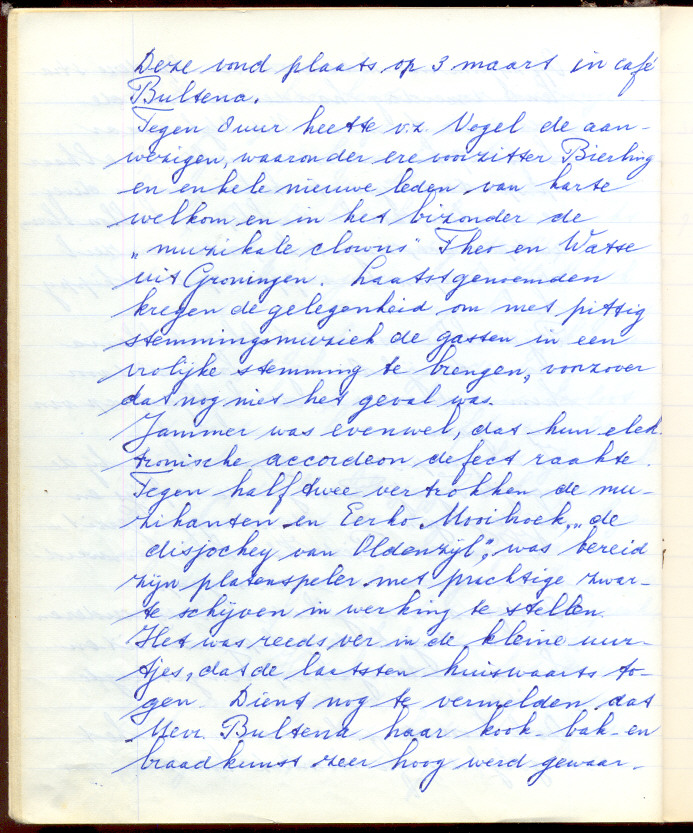 Deze vond plaats op 3 maart in café
Bultena.
Tegen 8 uur heette v.z. Vogel de aan-
wezigen, waaronder erevoorzitter Bierling
en enkele nieuwe leden van harte
welkom en in het bizonder de
„muzikale clowns" Theo en Watse
uit Groningen. Laatstgenoemden
kregen de gelegenheid om met pittig
stemmingsmuziek de gasten in een
vrolijke stemming te brengen, voorzover
dat nog niet het geval was.
Jammer was evenwel, dat hun elec
tronische accordeon defect raakte.
Tegen half twee vertrokken de mu-
zikanten en Eerko Mooihoek, „de
disjockey van Oldenzijl", was bereid
zijn platenspeler met prachtige zwar-
te schijven in werking te stellen.
Het was reeds ver in de kleine uur-
tjes, dat de laatsten huiswaarts to-
gen. Dient nog te vermelden dat
Mevr. Bultena haar kook- bak- en
braadkunst zeer hoog werd gewaar-